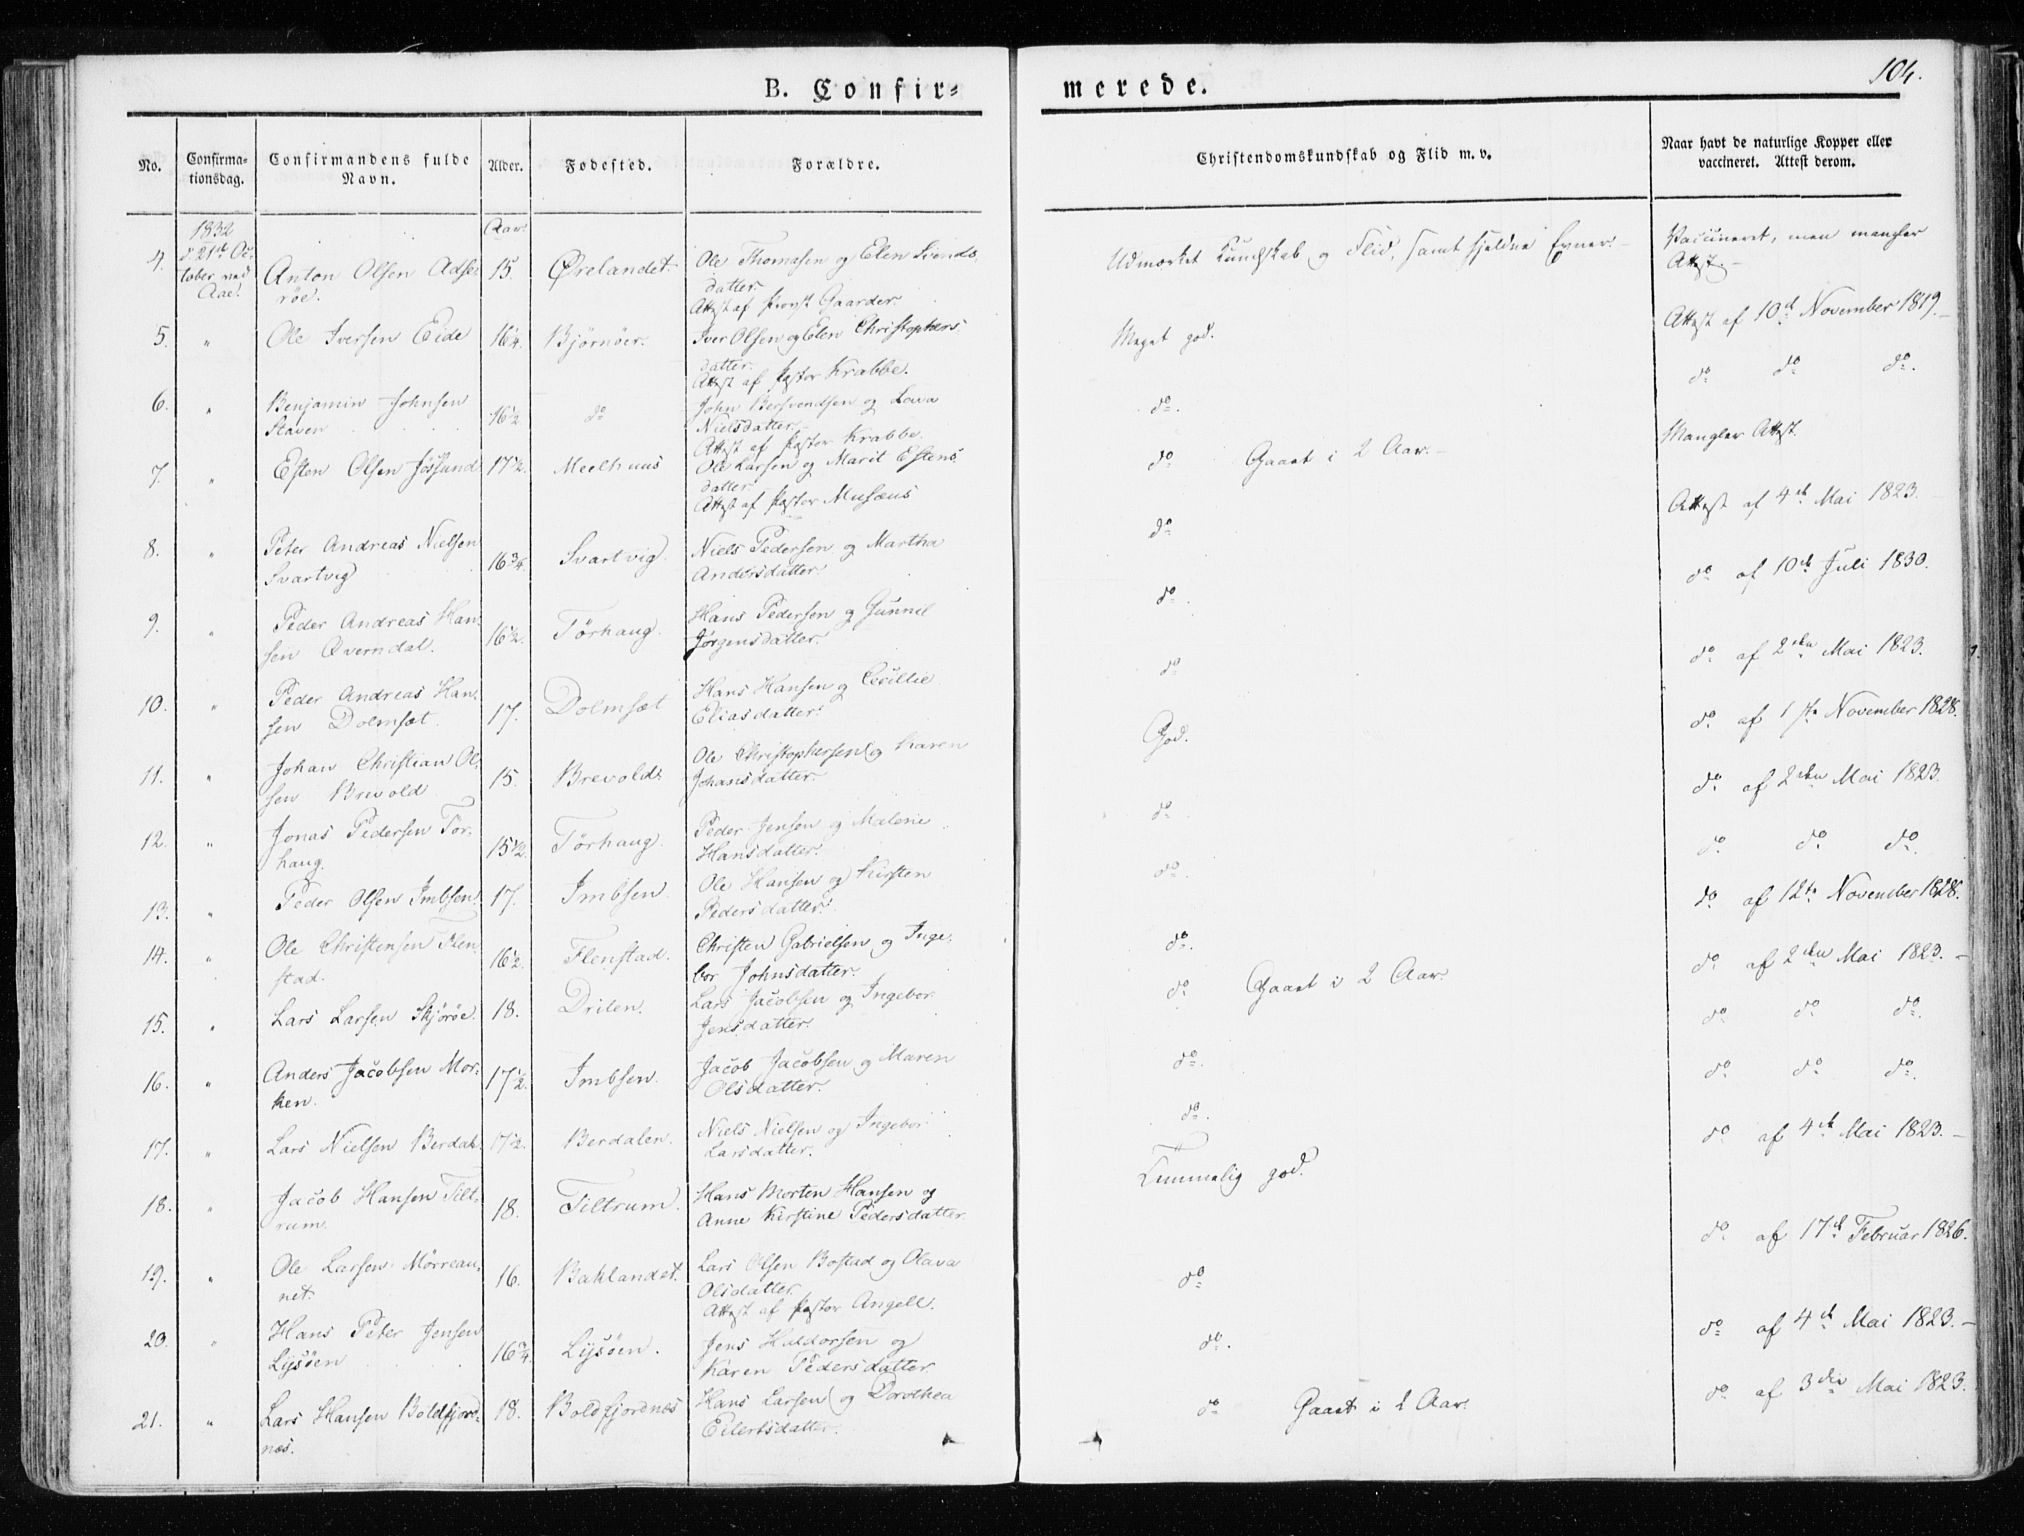 104.
B. Confir=
merede.
No.
Confirma-
tionsdag.
Confirmandens fulde
Navn.
Alder.
Fodested.
Forældre.
Christendomskundskab og Flid m. v.
Naar havt de naturlige Kopper eller
vaccineret. Attest derom.
1832
Aar.
4.
Oc-
tober ved
Aae.
Anton Olsen Adse-
röe.
15.
Ørelandet.
Ole Thomasen og Elen Svends-
datter.
Attest af Provst Gaarder.
Udmærket Kundskab og Flid, samt sjeldne Evner.
Vaccineret, men mangler
Attest.
5.
"
Ole Iversen Eide
16¼.
Bjørnöer.
Iver Olsen og Elen Christophers-
datter.
Attest af Pastor Krabbe.
Meget god.
Attest af 10d November 1819.
6.
"
Benjamin Johnsen
Staven
16½.
do
John Bersvendsen og Lava
Nielsdatter.
Attest af Pastor Krabbe.
do.
do do do.
7.
"
Esten Olsen Jössund
17½.
Meelhuus
Ole Larsen og Marit Estens-
datter.
Attest af Pastor Musæus
do Gaaet i 2 Aar.
Mangler Attest.
8.
"
Peter Andreas Nielsen
Svartvig
16¾.
Svartvig.
Niels Pedersen og Martha
Andersdatter.
do
Attest af 4de Mai 1823.
9.
"
Peder Andreas Han-
sen Overndal.
16½.
Törhaug.
Hans Pedersen og Gunnil
Jörgensdatter.
do.
do af 10de Juli 1830.
10.
"
Peder Andreas Han-
sen Dolmsæt.
17.
Dolmsæt
Hans Hansen og Cecillie
Eliasdatter.
do
do. af 2den Mai 1823.
11.
"
Johan Christian Ol-
sen Brevold
15.
Brevold.
Ole Christophersen og Karen
Johansdatter.
God.
do af 1ste November 1828.
12.
"
Jonas Pedersen Tör-
haug.
15½.
Törhaug.
Peder Jensen og Malene
Hansdatter.
do.
do. af 2den Mai 1823.
13.
"
Peder Olsen Imbsen.
17.
Imbsen.
Ole Hansen og Kirsten
Pedersdatter.
do.
do. do do.
14.
"
Ole Christensen Flen-
stad.
16½.
Flenstad.
Christen Gabrielsen og Inge-
bor Johnsdatter.
do.
do. af 12te November 1828.
15.
"
Lars Larsen Skjöröe.
18.
Drilen.
Lars Jacobsen og Ingebor
Jensdatter.
do Gaaet i 2 Aar.
do. af 2den Mai 1823.
16.
"
Anders Jacobsen Mor-
ken.
17½.
Imbsen.
Jacob Jacobsen og Maren
Olsdatter.
do.
do do do.
17.
"
Lars Nielsen Berdal.
17½.
Berdalen.
Niels Nielsen og Ingebor
Larsdatter.
do.
do. do do.
18.
"
Jacob Hansen Tilt-
rum.
18.
Tiltrum.
Hans Morten Hansen og
Anne Kirstine Pedersdatter.
Temmelig god.
do af 4de Mai 1823.
19.
"
Ole Larsen Mörreau-
net.
16.
Baklandet.
Lars Olsen Bostad og Olava
Olsdatter.
Attest af Pastor Angell.
do
do. af 17de Februar 1826.
20.
"
Hans Peter Jensen
Lysöen
16¾.
Lysöen.
Jens Haldorsen og
Karen Pedersdatter.
do.
do. af 4de Mai 1823.
21.
"
Lars Hansen Boldfjord-
næs.
18.
Boldfjordnæs
Hans Larsen og Dorothea
Eilertsdatter.
do Gaaet i 2 Aar.
do af 3die Mai 1823.